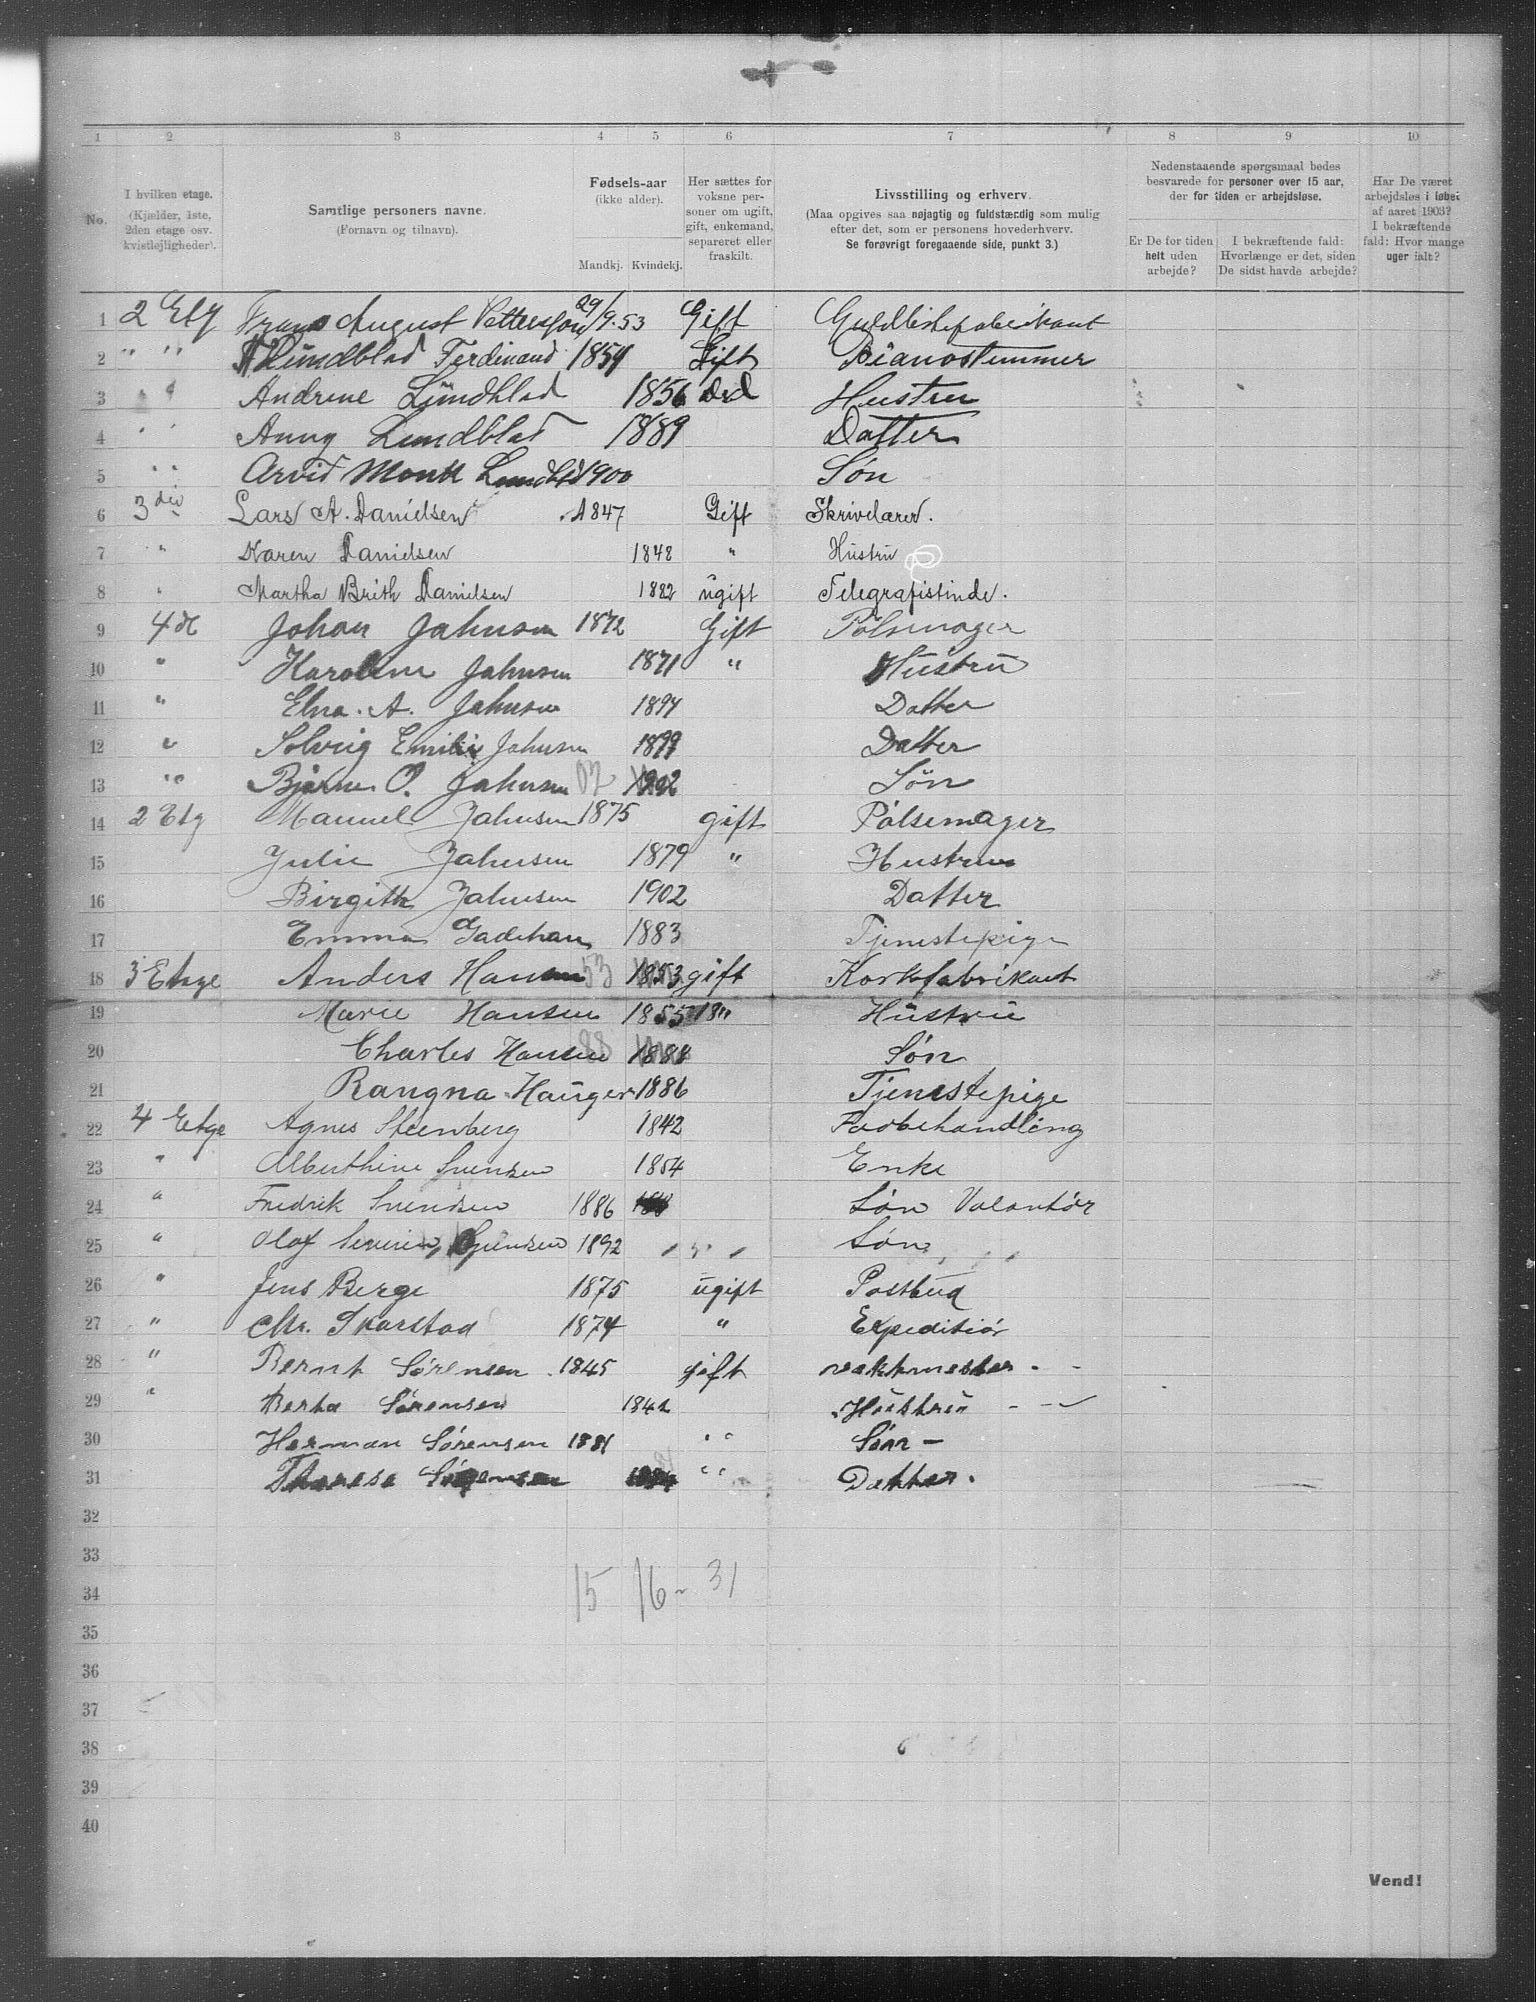 1 2 3 4 5 6 7 8 9 10
No.
I hvilken etage. (Kjælder, 1ste, 2den etage osv. kvistlejligheder).
Samtlige personers navne. (Fornavn og tilnavn).
Fødsels-aar (ikke alder).
Mandkj. Kvindekj.
Her sættes for voksne personer om ugift, gift, enkemand, separeret eller fraskilt.
Livsstilling og erhverv.
(Maa opgives saa nøjagtig og fuldstændig som mulig efter det, som er personens hovederhverv.
Se forøvrigt foregaaende side, punkt 3.)
Nedenstaaende spørgsmaal bedes besvarede for personer over 15 aar, der for tiden er arbejdsløse.
Er De for tiden helt uden arbejde?
I bekræftende fald: Hvorlænge er det, siden De sidst havde arbejde?
Har De været arbejdsløs i løbet af aaret 1903? I bekræftende fald: Hvor mange uger ialt?
1 2 Etg Frans August Pettersson 29/9.53 Gift Guldlistefabrikant
2 " " Lundblad Ferdinand 1854 Gift Pianostemmer
3 " " Andrene Lundblad 1856 Hustru
4 " " Anny Lundblad 1889 Datter
5 " " Arvid Monk Lundblad 1900 Søn
6 3die Lars A. Danielsen 1847 Gift Skrivelærer.
7 " Karen Danielsen 1848 " Hustru
8 " Martha Brith Danielsen 1882 ugift Telegrafistinde.
9 4de Johan Jahnsen 1872 Gift Pølsemager
10 " Karoline Jahnsen 1871 " Hustru
11 " Elna. A. Jahnsen 1894 Datter
12 " Solveig Emilie Jahnsen 1899 Datter
13 " Bjarne O. Jahnsen 02 1902 Søn
14 2 Etg Manuel Jahnsen 1875 gift Pølsemager
15 Julie Jahnsen 1879 " Hustru
16 Birgith Jahnsen 1902 Datter
17 Emma Gadehan 1883 Tjenestepige
18 3 Etage Anders Hansen 53 1853 gift Korkfabrikant
19 Marie Hansen 1855 " Hustru
20 Charles Hansen 88 1888 Søn
21 Rangna Hauger 1886 Tjenestepige
22 4 Etge Agnes Steenberg 1842 Fodbehandling
23 " Alberthine Svensen 1854 Enke
24 " Fredrik Svendsen 1886 Søn Volontør
25 " Olaf Severin Svendsen 1892 " " " Søn
26 " Jens Berge 1875 ugift Postbud
27 " Chr. Skarstad 1874 " Expeditiør
28 " Bernt Sørensen 1845 gift vaktmester - -
29 " Berta Sørensen 1842 Hustru - -
30 Herman Sørensen 1881 " Søn -
31 Therese Sørensen 1884 " Datter.
32
33
34 15 16 - 31
35
36
37
38
39
40
Vend!